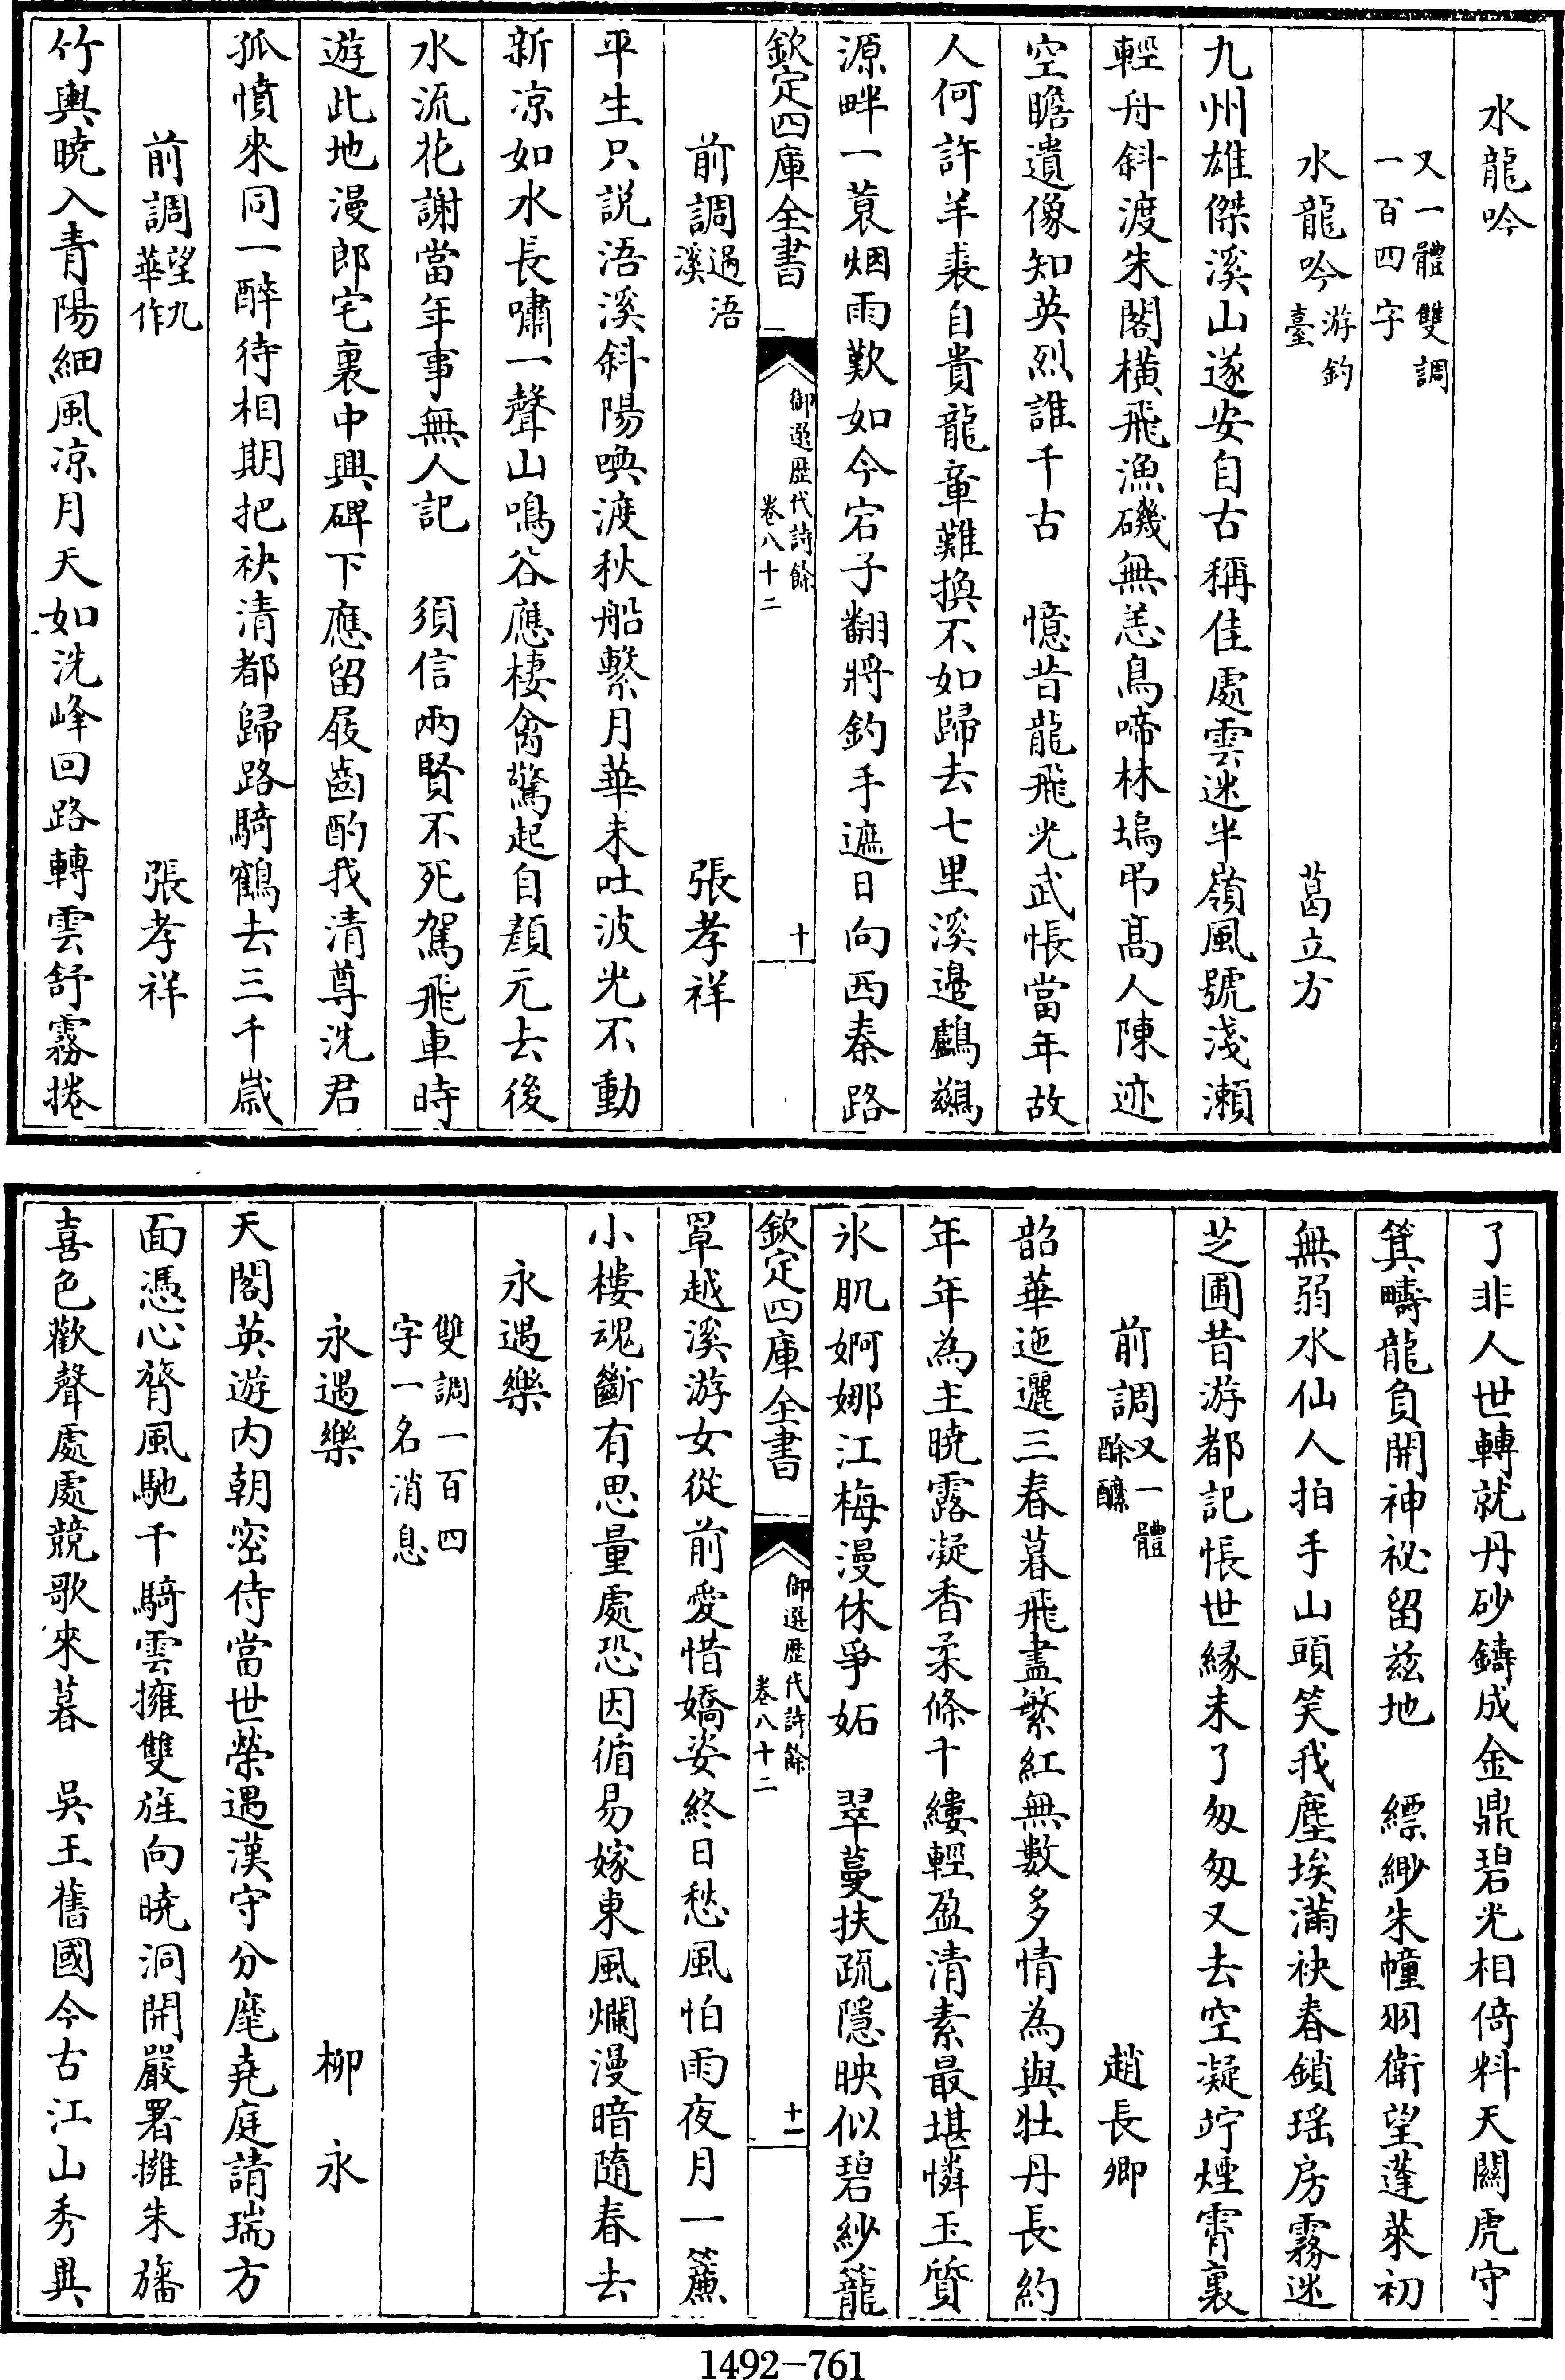 水龍吟
又一體雙調
一百四字
水龍吟游釣臺　葛立方
九州雄傑溪山遂安自古稱佳處雲迷半嶺風號淺瀨
輕舟斜渡朱閣橫飛漁磯無恙鳥啼林塢弔髙人陳迹
空瞻遺像知英烈誰千古　憶昔龍飛光武悵當年故
人何許羊裘自貴龍章難換不如歸去七里溪邊鸕鷀
源畔一蓑烟雨歎如今宕子翻將釣手遮日向西秦路
欽定四庫全書　御選歴代詩餘卷八十二　十
前調過浯溪　張孝祥
平生只説浯溪斜陽喚渡秋船繫月華未吐波光不動
新凉如水長嘯一聲山鳴谷應棲禽驚起自顔元去後
水流花謝當年事無人記　須信兩賢不死駕飛車時
遊此地漫郎宅裏中興碑下應留屐齒酌我清尊洗君
孤憤來同一醉待相期把袂清都歸路騎鶴去三千歲
前調望九華作　張孝祥
竹輿曉入青陽細風凉月天如洗峰回路轉雲舒霧捲
了非人世轉就丹砂鑄成金鼎碧光相倚料天闗虎守
箕疇龍負開神祕留兹地　縹緲朱幢羽衛望蓬萊初
無弱水仙人拍手山頭笑我塵埃滿袂春鎖瑶房霧迷
芝圃昔游都記悵世縁未了匆匆又去空凝竚煙霄裏
前調又一體酴醾　趙長卿
韶華迤邐三春暮飛盡繁紅無數多情為與牡丹長約
年年為主曉露凝香柔條千縷輕盈清素最堪憐玉質
氷肌婀娜江梅漫休爭妬　翠蔓扶疏隱映似碧紗籠
欽定四庫全書　御選歴代詩餘卷八十二　十一
罩越溪游女從前愛惜嬌姿終日愁風怕雨夜月一簾
小樓魂斷有思量處恐因循易嫁東風爛漫暗隨春去
永遇樂
雙調一百四
字一名消息
永遇樂　柳永
天閣英遊内朝密侍當世榮遇漢守分麾堯庭請瑞方
面憑心膂風馳千騎雲擁雙旌向曉洞開嚴署擁朱旛
喜色歡聲處處競歌來暮　吳王舊國今古江山秀異
1492-761